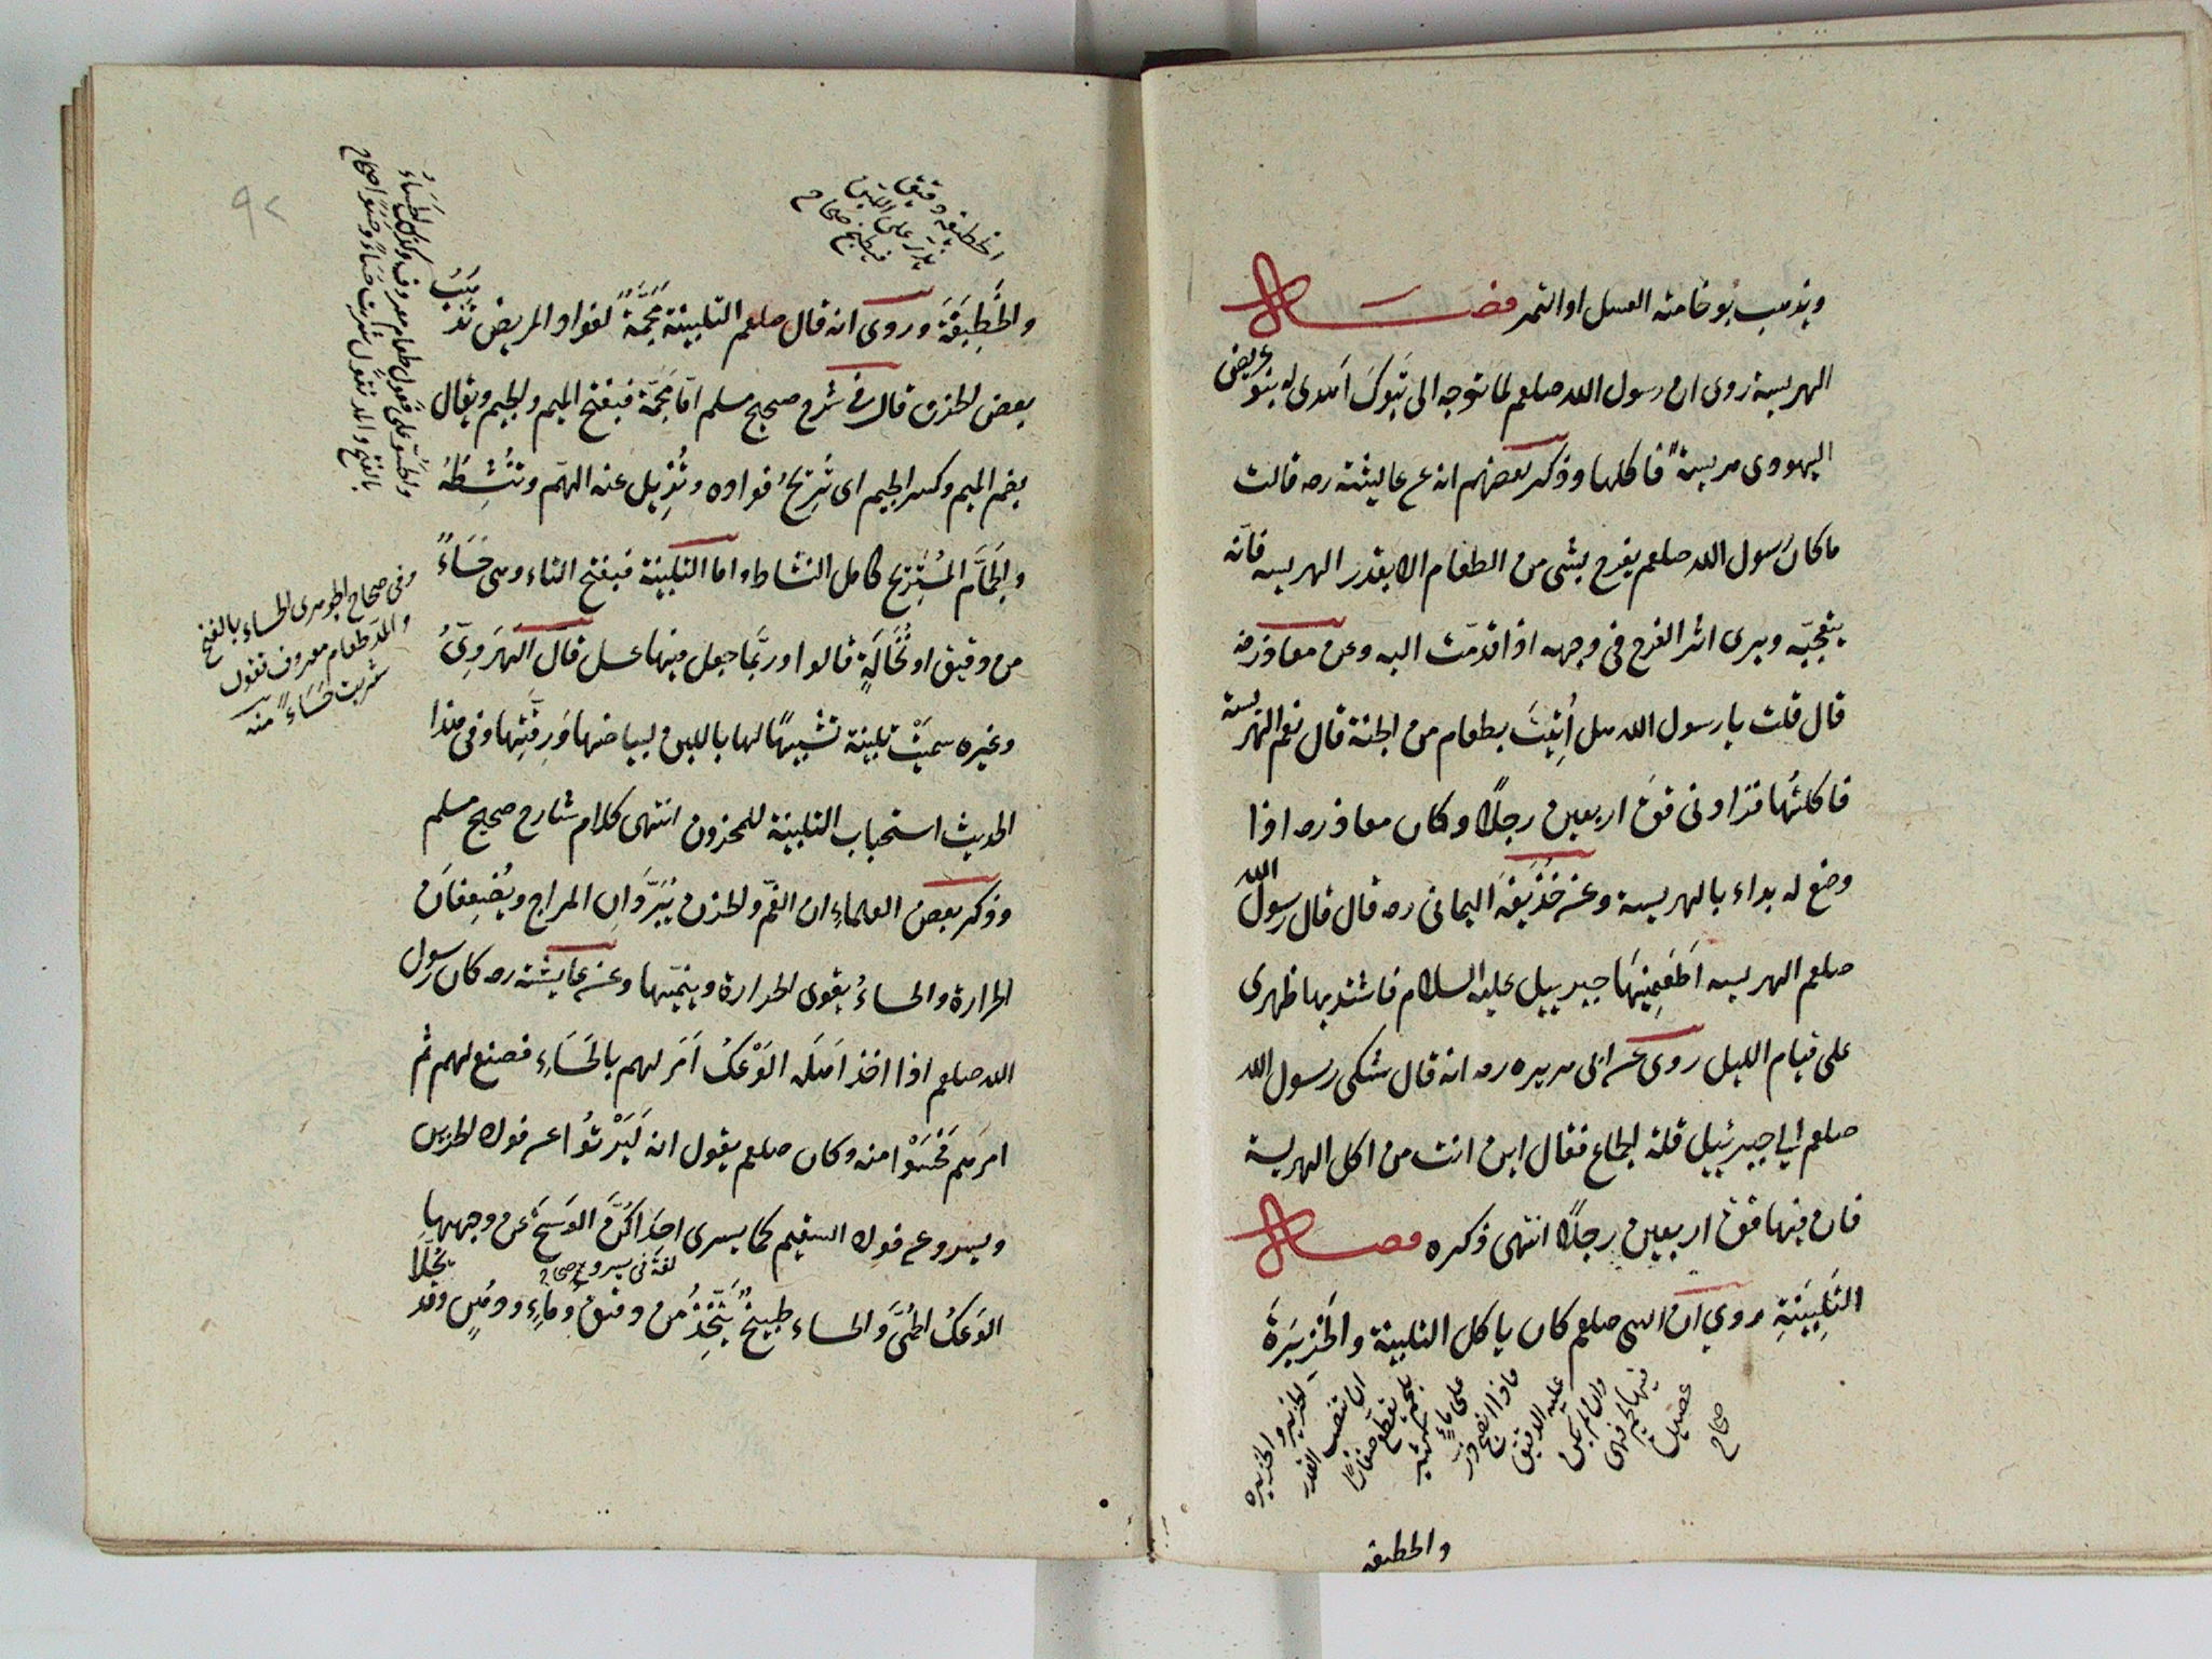 ويذهب بوخامته العسل او التمر فصل
الهريسة روى ان رسول الله صلعم لما توجه الى تبوك اهدى له بنو عريض
اليهودى هريسةً فاكلها وذكر بعضهم انه عن عائشة رضه قالت
ما كان رسول الله صلعم يفرح بشى من الطعام الا بقدر الهريسه فانه
يعجبه ويرى اثر الفرح فى وجهه اذا قدمت اليه وعن معاذ رضه
قال قلت يا رسول الله هل أُتِيتَ بطعام من الجنة قال نعم الهريسة
فاكلتُها فزاد فى قوة اربعين رجلًا وكان معاذ رضه اذا
وضع له بداء بالهريسة وعن حُذَيفَة اليمانى رضه قال قال رسول الله
صلعم الهريسه اَطعَمِنيهَا جبرييل عليه السلام فاشتد بها ظهرى
على قيام الليل روى عن ابى هريره رضه انه قال شكى رسول الله
صلعم الى جبرئييل قلة الجماع فقال اين انت من اكل الهريسة
فان فيها قوة اربعين رجلًا انتهى ذكره فصل
التَلبِينَةِ روي ان النبى صلعم كان ياكل التلبينة والخَزِيرَةَ
الخزير والخزيره
ان تنصب القدر
بلحم يقطع صغارًا
على ماءٍ كثير
فاذا نضج ذرّ
عليه الدقيق
وان لم يكن
فيها لحم فهى
عصيدة
صحاح
والخطيفه
الخطيفه دقيق
يذرّ على اللبن
فيطبخ صحاح
والخَطِيفَةَ وروى انه قال صلعم التلبينة مَجَمَّةً لفواد المريض تَذهَبُ
بعض الحزن قال فى شرح صحيح مسلم امّا مَجَمَّة فبفتح الميم والجيم ويقال
بضم الميم وكسر الجيم اى تُرِيحُ فواده وتُزِيل عنه الهمّ وتُنشِطُهُ
والجَمَامّ المُستَرِيح كامل النشاط واما التلبينة فبفتح التاء وهى حَسَاءً
من دقيق او نُخَالَةٍ قالوا وربّما جعل فيها عسل قال الهَرَوِىُّ
وغيره سميتْ تلبينة تشبيهًا لها باللبن لبياضها وَرِقَّتِها وفى هذا
الحديث استحباب التلبينة للمحزون انتهى كلام شارح صحيح مسلم
وذكر بعض العلماءِ ان الغمّ والحزن يُبَرِّدَانِ المزاج ويُضعِفانَ
الحرارة والحساءُ يقوى الحرارة وينمّيها وعن عائشة رضه كان رسول
الله صلعم اذا اخذ اَهلَه الوَعْكُ اَمَر لهم بالحَسَاءِ فصنع لهم ثم
امرَهم فَحَسَوْا منه وكان صلعم يقول انه لَيَرْتُوا عن فواد الحزين
ويسرو عن فواد السقيم كما يسرى احدَاكُنّ الوَسَخَ عن وجهها
لغة فى يسرو صحاح
الوَعكُ الحُمَّى وَالحساء طبيخٌ يُتَّخِذُ من دقيق وماءٍ ودُهنٍ وقد يُحَلَّا
والحسوّ على فَعُول طعام معروف وكذلك الحَسَاءُ
بالفتح والمد تقول شَرِبتُ حَسَاءً وحَسُوًّا صحاح
وفى صحاح الجوهرى الحساء بالفتح
والمدّ طعام معروف تقول
شربت حَسَاءً منه